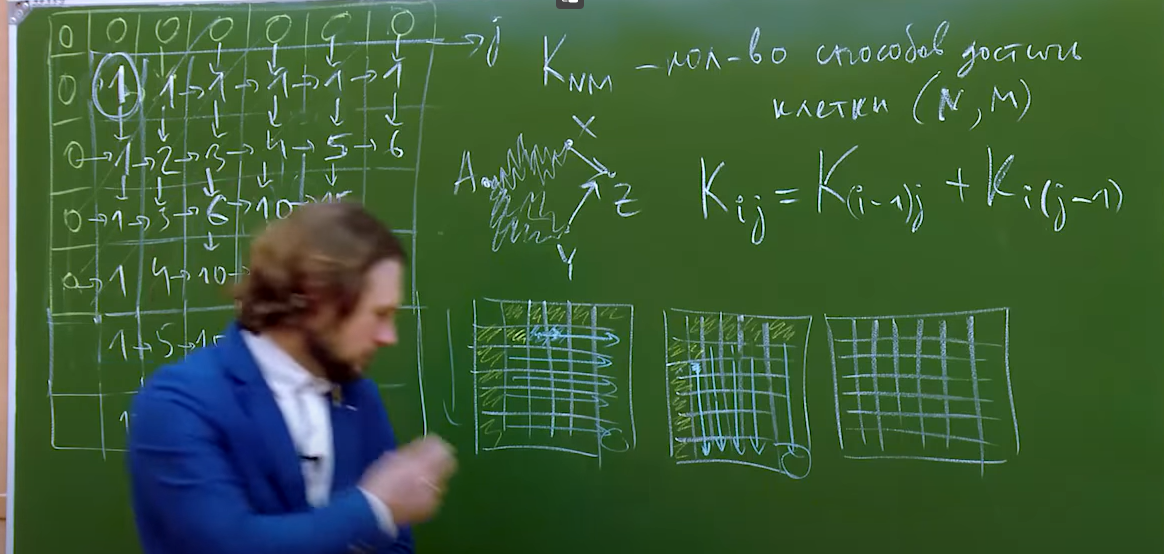 0 0 0 0 0 0 0
→ j
0 1 1 → 1 → 1 → 1 → 1
0 → 1 → 2 → 3 → 4 → 5 → 6
0 → 1 → 3 → 6 → 10 → 15
0 → 1 4 → 10
1 → 5 → 15
1
K_NM – кол-во способов достичь
клетки (N, M)
X
A
Z
Y
K_ij = K_(i-1)j + K_i(j-1)